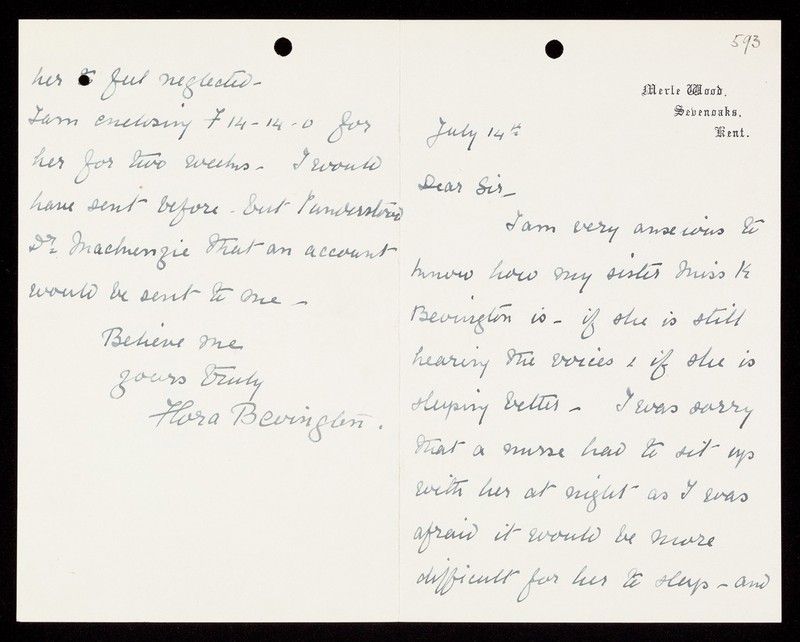 593
Merle Wood,
Sevenoaks,
Kent.
July 14th
Dear Sir_
I am very anxious to
know how my sister Miss K
Bevington is - if she is still
hearing the voices & if she is
sleeping better - I was sorry
that a nurse had to sit up
with her at night as I was
afraid it would be more
difficult for her to sleep - and
her to feel neglected -
I am enclosing £14-14-0 for
her for two weeks - I would
have sent before - but I understood
Dr. Mackenzie that an account
would be sent to me -
Believe me
yours truly
Flora Bevington.